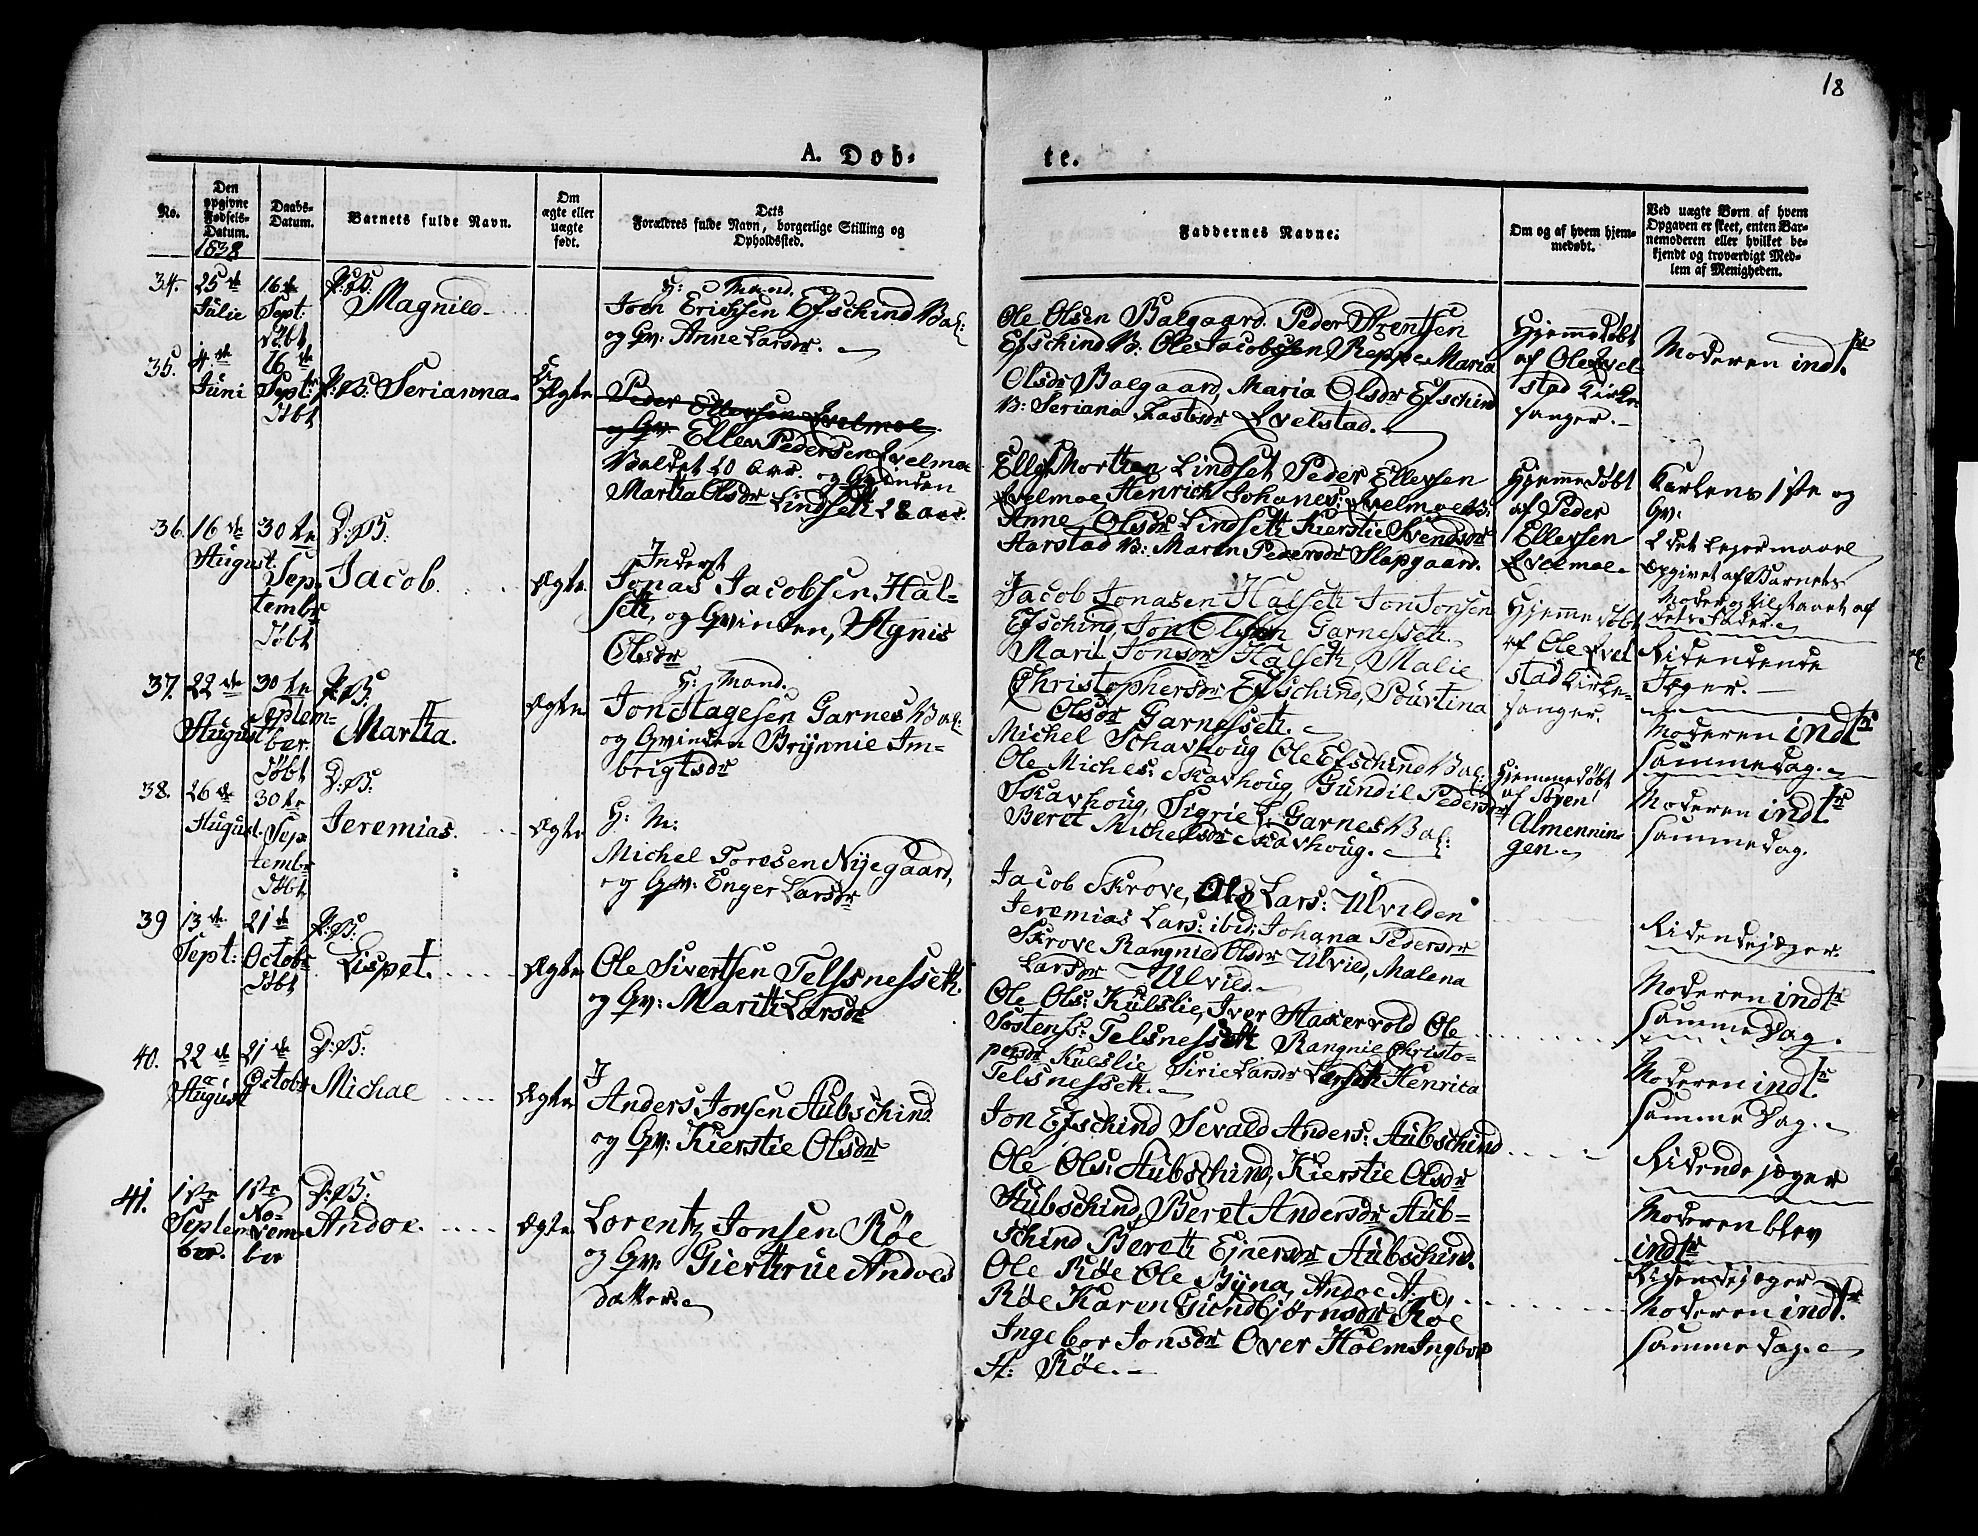 18
A. Døb-
te.
No.
Den opgivne Fødsels-Datum.
1838
Daabs-Datum.
Barnets fulde Navn.
Om ægte eller uægte født.
Dets Forældres fulde Navn, borgerlige Stilling og Opholdsted.
Faddernes Navne.
Om og af hvem hjem-medøbt.
Ved uægte Børn af hvem Opgaven er skeet, enten Bar-nemoderen eller hvilket be-kjendt og troværdigt Med-lem af Menigheden.
34.
25de
Julie
16de
Sept:
Døbt
P:B:
Magnild
G: Mand.
Joen Erichsen Efschind Val:
og Gv: Anne Larsdr.
Ole Olsen Balgaard. Peder Arentsen
Efschind V: Ole Jacobsen Reppe Maria
Olsdr Balgaard, Maria Olsdr Efschind
V: Seriana Kastesdr Evelstad.
Hjemmedøbt
af Ole Evel-
stad Kirke-
sanger.
Moderen indtr
35.
4de
Juni
16de
Septr
Døbt
P:B: Serianna
U
Ægte
Peder Ellevsen Evelmoe
og Gv: Ellev Pedersen Evelmoe
Valdet 20 Aar. og Qvinden
Martia Olsdr Lindseth 28 aar.
Ellef Morthen Lindset Peder Ellevsen
Evelmoe, Henrich Johanes: Evelmoe V:
Anne Olsdr Lindseth Kierstie Svendsdr
Aarstad V: Maren Pedersdr Slapgaard.
Hjemmedøbt
af Peder
Ellevsen
Evelmoe
Karlens 1ste og
Qv:
2det Lejermaael
Opgivet af Barnets
Moder og tilstaaet af
dets Fader
36.
16de
August
30te
Sep-
tembr
Døbt
D:B:
Jacob.
Ægte
Inderst
Jonas Jacobsen Hal-
seth, og Qvinden, Agnis
Olsdr
Jacob Jonasen Halseth Jon Jonsen
Efschind, Jon Olsen Garnesseth.
Marit Jonsdr Halseth, Malie
Christophersdr Efschind, Pourtina
Olsdr Garnesseth.
Hjemmedøbt
af Ole Evel
stad Kirke-
sanger.
Ridendende
Jæger.
Moderen indtr
samme dag.
37.
22de
August
30te
Septem-
ber.
Døbt
P:B:
Martha.
Ægte
G: Mand.
Jon Aagesen Garnes Val:
og Qvinden Brynnie Im-
brigtsdr
Michel Schavhoug Ole Efschind Val:
Ole Michels: Skavhoug, Gundil Pedersdr
Skavhoug, Sigrie L: Garnes Val:
Beret Michelsdr Skavhoug.
Hjemmedøbt
af Sven
Almennin-
gen.
Moderen indtr
samme dag.
38.
26de
August.
30te
Sep
tembr
døbt
D:B:
Jeremias.
Ægte
G: M:
Michel Toresen Nyegaard,
og Gv: Enger Larsdr
Jacob Skrove, Ole Lars: Ulvilden
Jeremias Lars: ibid, Johana Pedersdr
Skrove Rangnid Olsdr Ulvild, Malena
Larsdr Ulvild.
Ridendejæger.
Moderen indtr
samme dag.
39
13de
Sept:
21de
Octobr
Døbt
P:B:
Lispet.
Ægte
Ole Sivertsen Telsnesseth.
og Gv: Marith Larsdr
Ole Ols: Kulslie, Iver Staxervold Ole
Sostenss: Telsnesseth Rangnie Christo-
persdr Kulslie Sirie Larsdr Larseth Henrica
Telsnesseth.
Moderen indtr
samme Dag.
40.
22de
August
21de
Octobr
D:B:
Michal
Ægte
I
Anders Jonsen Aubschind
og Gv: Kierstie Olsdr
Jon Efschind Sevald Anders: Aubschind
Ole Ols: Aubschind, Kierstie Olsdr
Aubschind, Beret Andersdr Aub-
schind Bereth Ejnersdr Aubschind.
Ridendejæger
Moderen blev
indtr
41.
1ste
Septem
ber.
1ste
No-
vem-
ber
D:B:
Andor.
Ægte
Lorentz Jonsen Røe
og Gv: Gierthrue Andors
datter.
Ole Røe Ole Byna, Andor A:
Røe Karen Gundbjørnsdr Røe
Ingebor Jonsdr Over Holm Ingbor
A: Røe.
Ridendejæger
Moderen indtr.
samme dag.